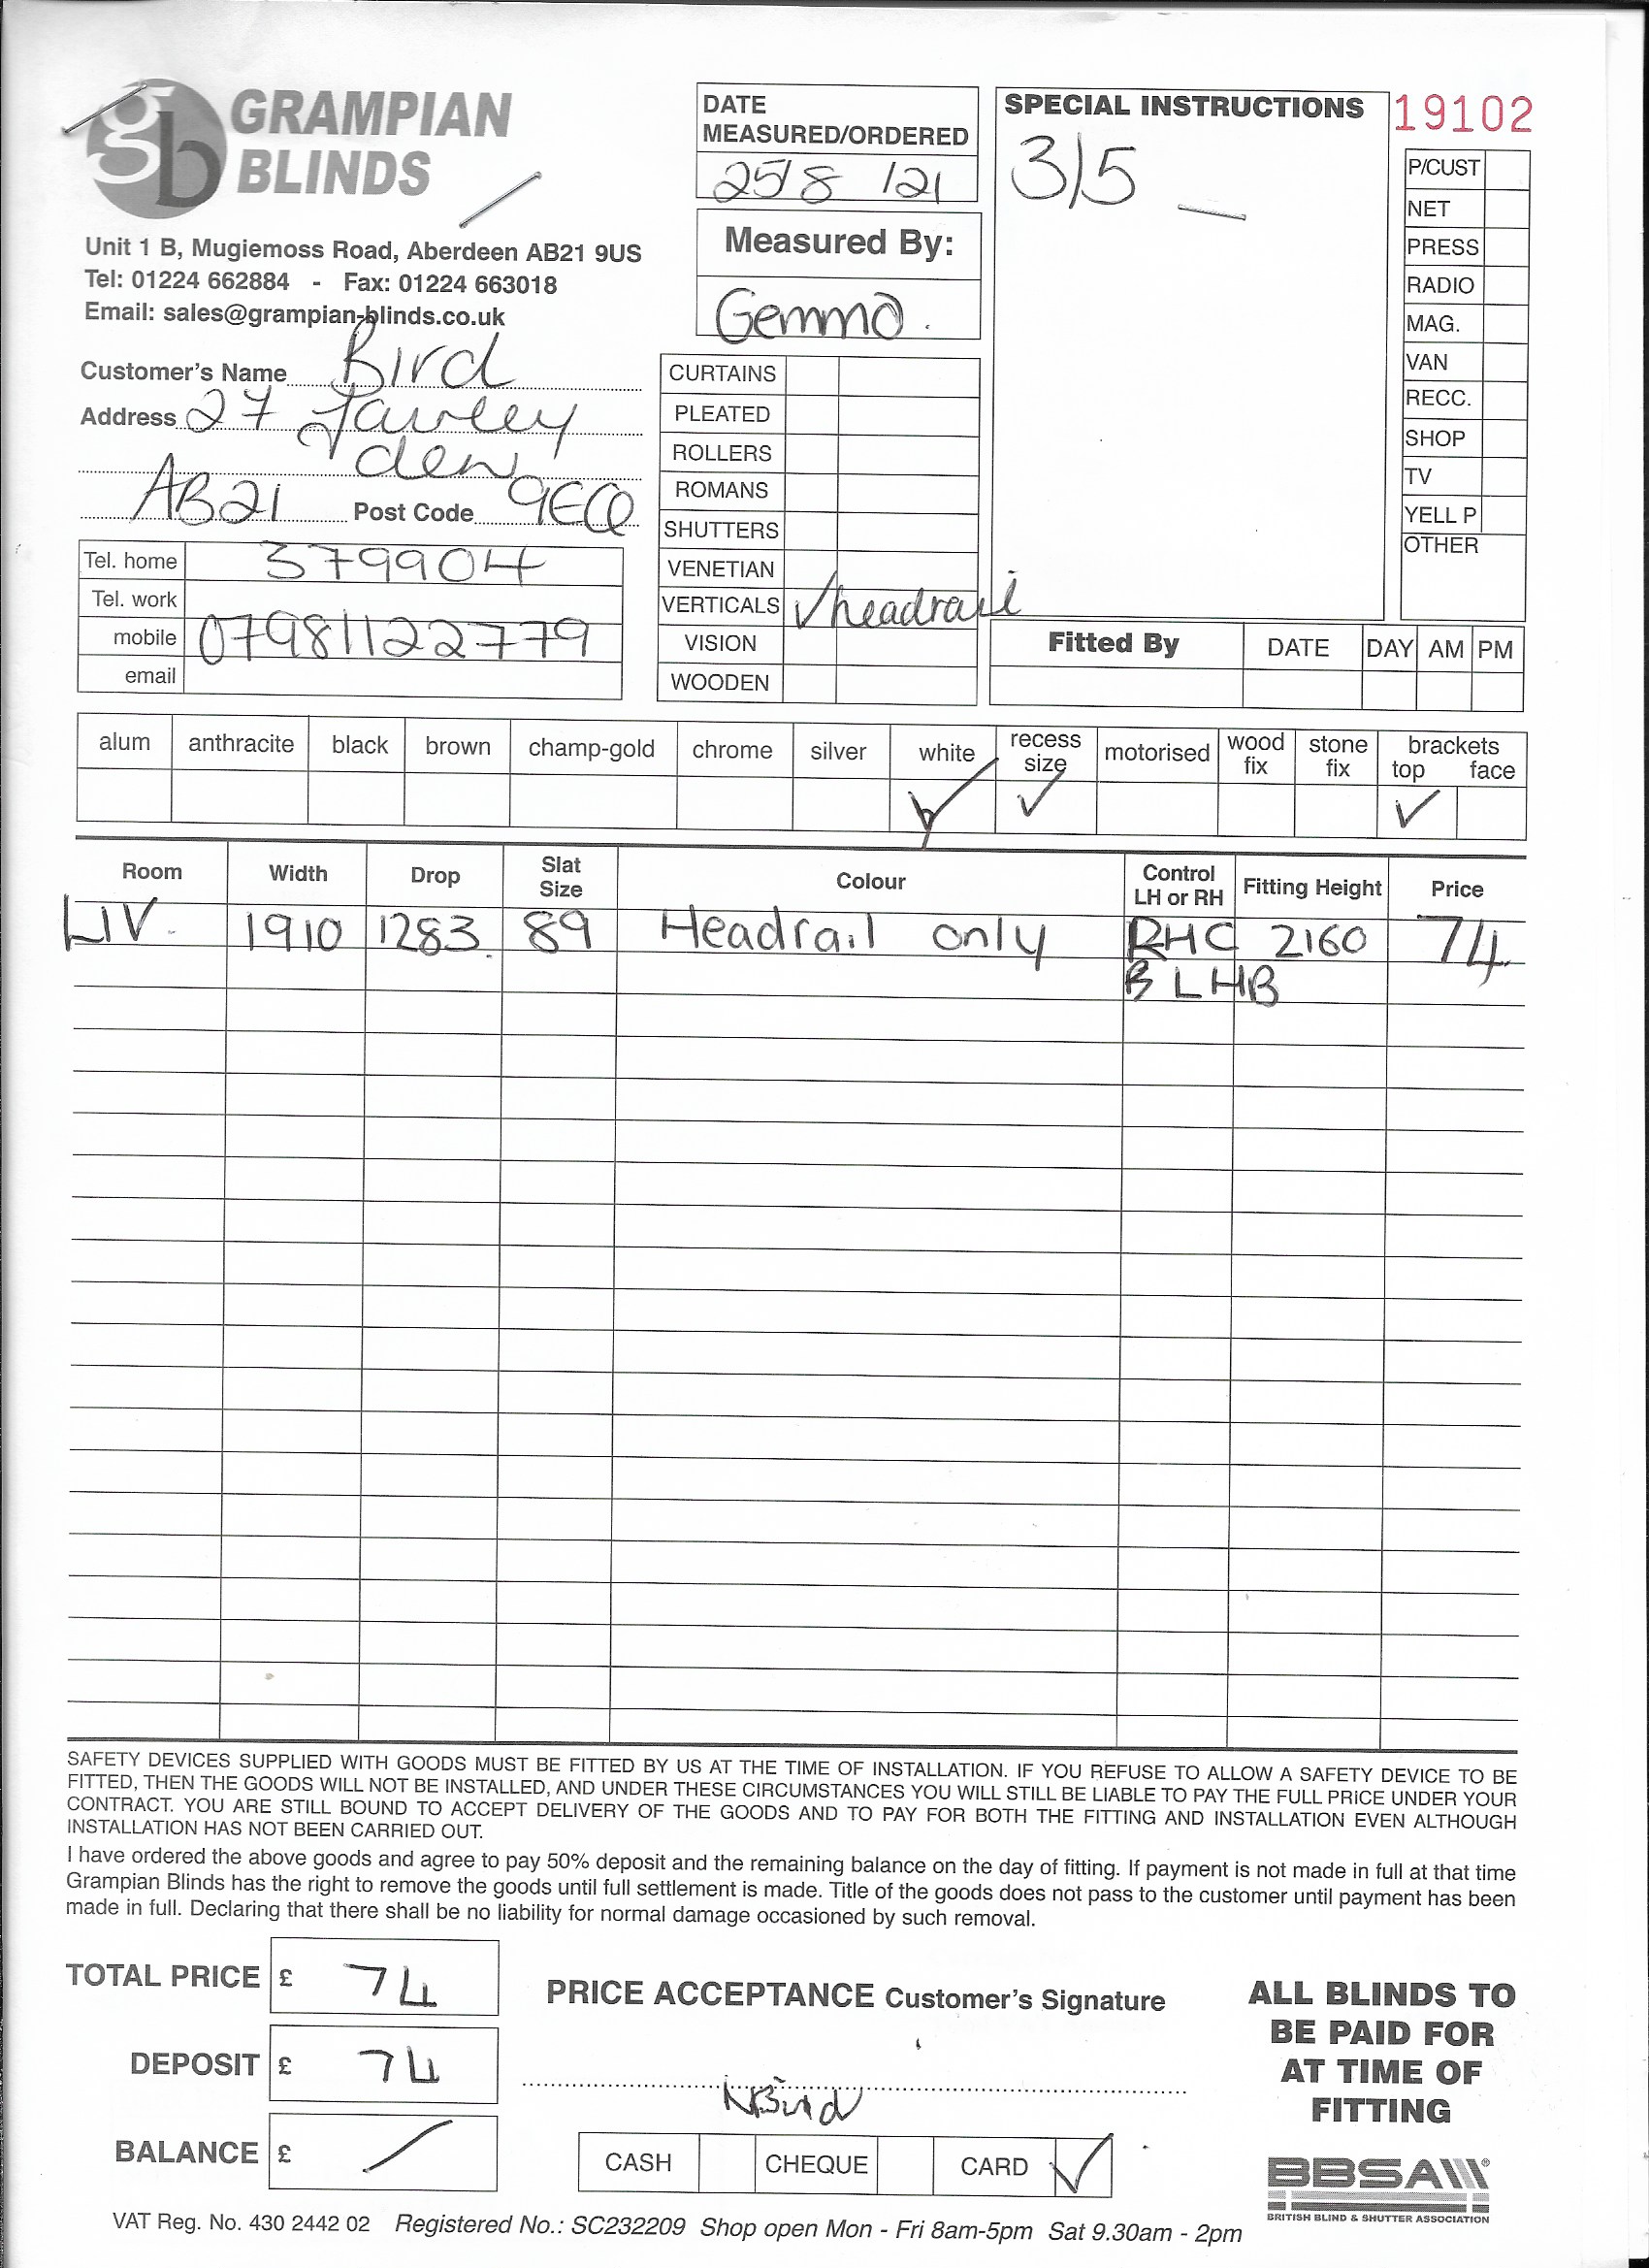 GRAMPIAN
BLINDS
Unit 1 B, Mugiemoss Road, Aberdeen AB21 9US
Tel: 01224 662884 - Fax: 01224 663018
Email: sales@grampian-blinds.co.uk
Customer's Name Bird
Address 27
den
AB21 Post Code 9EQ
Tel. home 379904
Tel. work
mobile 07981122779
email
DATE
MEASURED/ORDERED
25/8/21
Measured By:
Gemma.
CURTAINS
PLEATED
ROLLERS
ROMANS
SHUTTERS
VENETIAN
VERTICALS ✓ headrail
VISION
WOODEN
SPECIAL INSTRUCTIONS
3/5
19102
P/CUST
NET
PRESS
RADIO
MAG.
VAN
RECC.
SHOP
TV
YELL P
OTHER
Fitted By DATE DAY AM PM
alum anthracite black brown champ-gold chrome silver white recess size motorised wood fix stone fix brackets top face
✓ ✓ ✓
Room Width Drop Slat Size Colour Control LH or RH Fitting Height Price
LIV. 1910 1283 89 Headrail only RHC 2160 74
B LHB
SAFETY DEVICES SUPPLIED WITH GOODS MUST BE FITTED BY US AT THE TIME OF INSTALLATION. IF YOU REFUSE TO ALLOW A SAFETY DEVICE TO BE
FITTED, THEN THE GOODS WILL NOT BE INSTALLED, AND UNDER THESE CIRCUMSTANCES YOU WILL STILL BE LIABLE TO PAY THE FULL PRICE UNDER YOUR
CONTRACT. YOU ARE STILL BOUND TO ACCEPT DELIVERY OF THE GOODS AND TO PAY FOR BOTH THE FITTING AND INSTALLATION EVEN ALTHOUGH
INSTALLATION HAS NOT BEEN CARRIED OUT.
I have ordered the above goods and agree to pay 50% deposit and the remaining balance on the day of fitting. If payment is not made in full at that time
Grampian Blinds has the right to remove the goods until full settlement is made. Title of the goods does not pass to the customer until payment has been
made in full. Declaring that there shall be no liability for normal damage occasioned by such removal.
TOTAL PRICE £ 74
DEPOSIT £ 74
BALANCE £ /
PRICE ACCEPTANCE Customer's Signature
NBird
CASH CHEQUE CARD ✓
ALL BLINDS TO
BE PAID FOR
AT TIME OF
FITTING
BBSA
BRITISH BLIND & SHUTTER ASSOCIATION
VAT Reg. No. 430 2442 02 Registered No.: SC232209 Shop open Mon - Fri 8am-5pm Sat 9.30am - 2pm